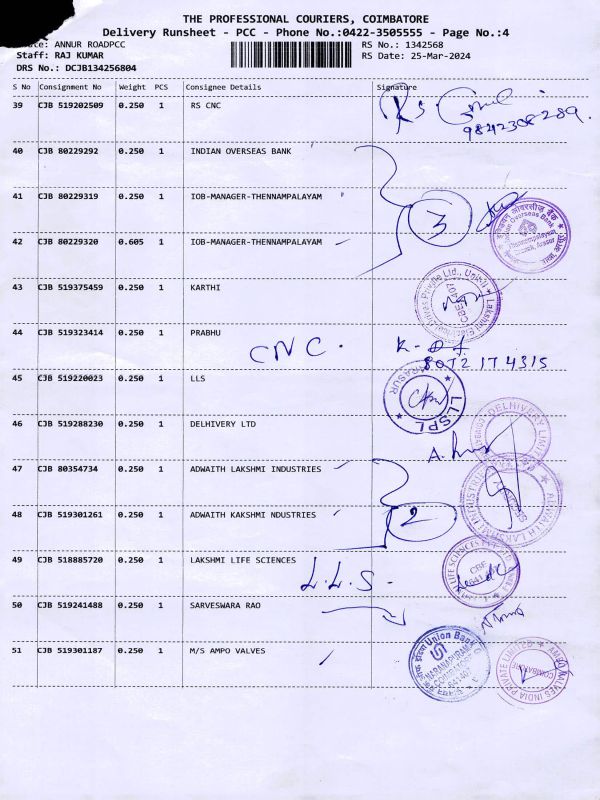 THE PROFESSIONAL COURIERS, COIMBATORE
Delivery Runsheet - PCC - Phone No.:0422-3505555 - Page No.:4
ANNUR ROADPCC RS No.: 1342568
Staff: RAJ KUMAR RS Date: 25-Mar-2024
DRS No.: DCJB134256804
S No Consignment No Weight PCS Consignee Details Signature
39 CJB 519202509 0.250 1 RS CNC
40 CJB 80229292 0.250 1 INDIAN OVERSEAS BANK
41 CJB 80229319 0.250 1 IOB-MANAGER-THENNAMPALAYAM
3
42 CJB 80229320 0.605 1 IOB-MANAGER-THENNAMPALAYAM
43 CJB 519375459 0.250 1 KARTHI
44 CJB 519323414 0.250 1 PRABHU
CNC.
8072174315
45 CJB 519220023 0.250 1 LLS
LLSPL
46 CJB 519288230 0.250 1 DELHIVERY LTD
DELHIVERY LIMITED
47 CJB 80354734 0.250 1 ADWAITH LAKSHMI INDUSTRIES
48 CJB 519301261 0.250 1 ADWAITH KAKSHMI NDUSTRIES
2
49 CJB 518885720 0.250 1 LAKSHMI LIFE SCIENCES
L.L.S -
50 CJB 519241488 0.250 1 SARVESWARA RAO
51 CJB 519301187 0.250 1 M/S AMPO VALVES
Union Bank
AMPO VALVES INDIA PRIVATE LIMITED
COIMBATORE